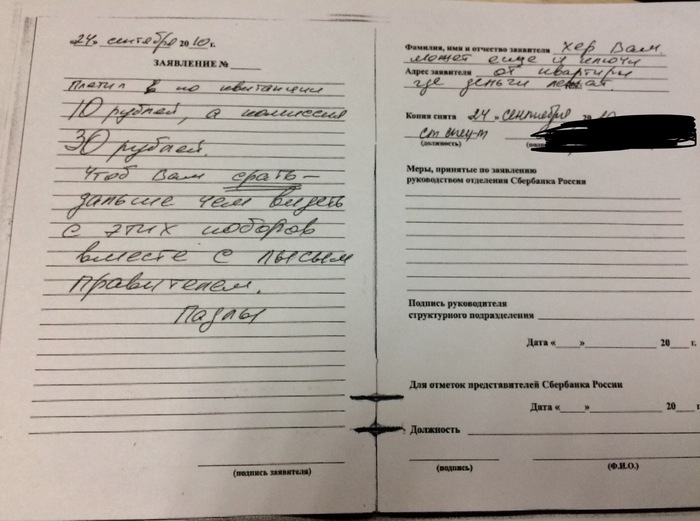 24 » сентября 2010 г.
ЗАЯВЛЕНИЕ №
Платил по квитанции
10 рублей, а комиссия
30 рублей.
Чтоб Вам срать –
дальше чем видеть
с этих поборов
вместе с лысым
правителем.
Падлы
(подпись заявителя)
Фамилия, имя и отчество заявителя хер Вам.
может еще и ключи
Адрес заявителя от квартиры
где деньги лежат
Копия снята 24 » сентября 2010
ст спец-т
(должность)
Меры, принятые по заявлению
руководством отделения Сбербанка России
Подпись руководителя
структурного подразделения
Дата «____» 20 г.
Для отметок представителей Сбербанка России
Дата «____» 20 г.
Должность
(подпись) (Ф.И.О.)